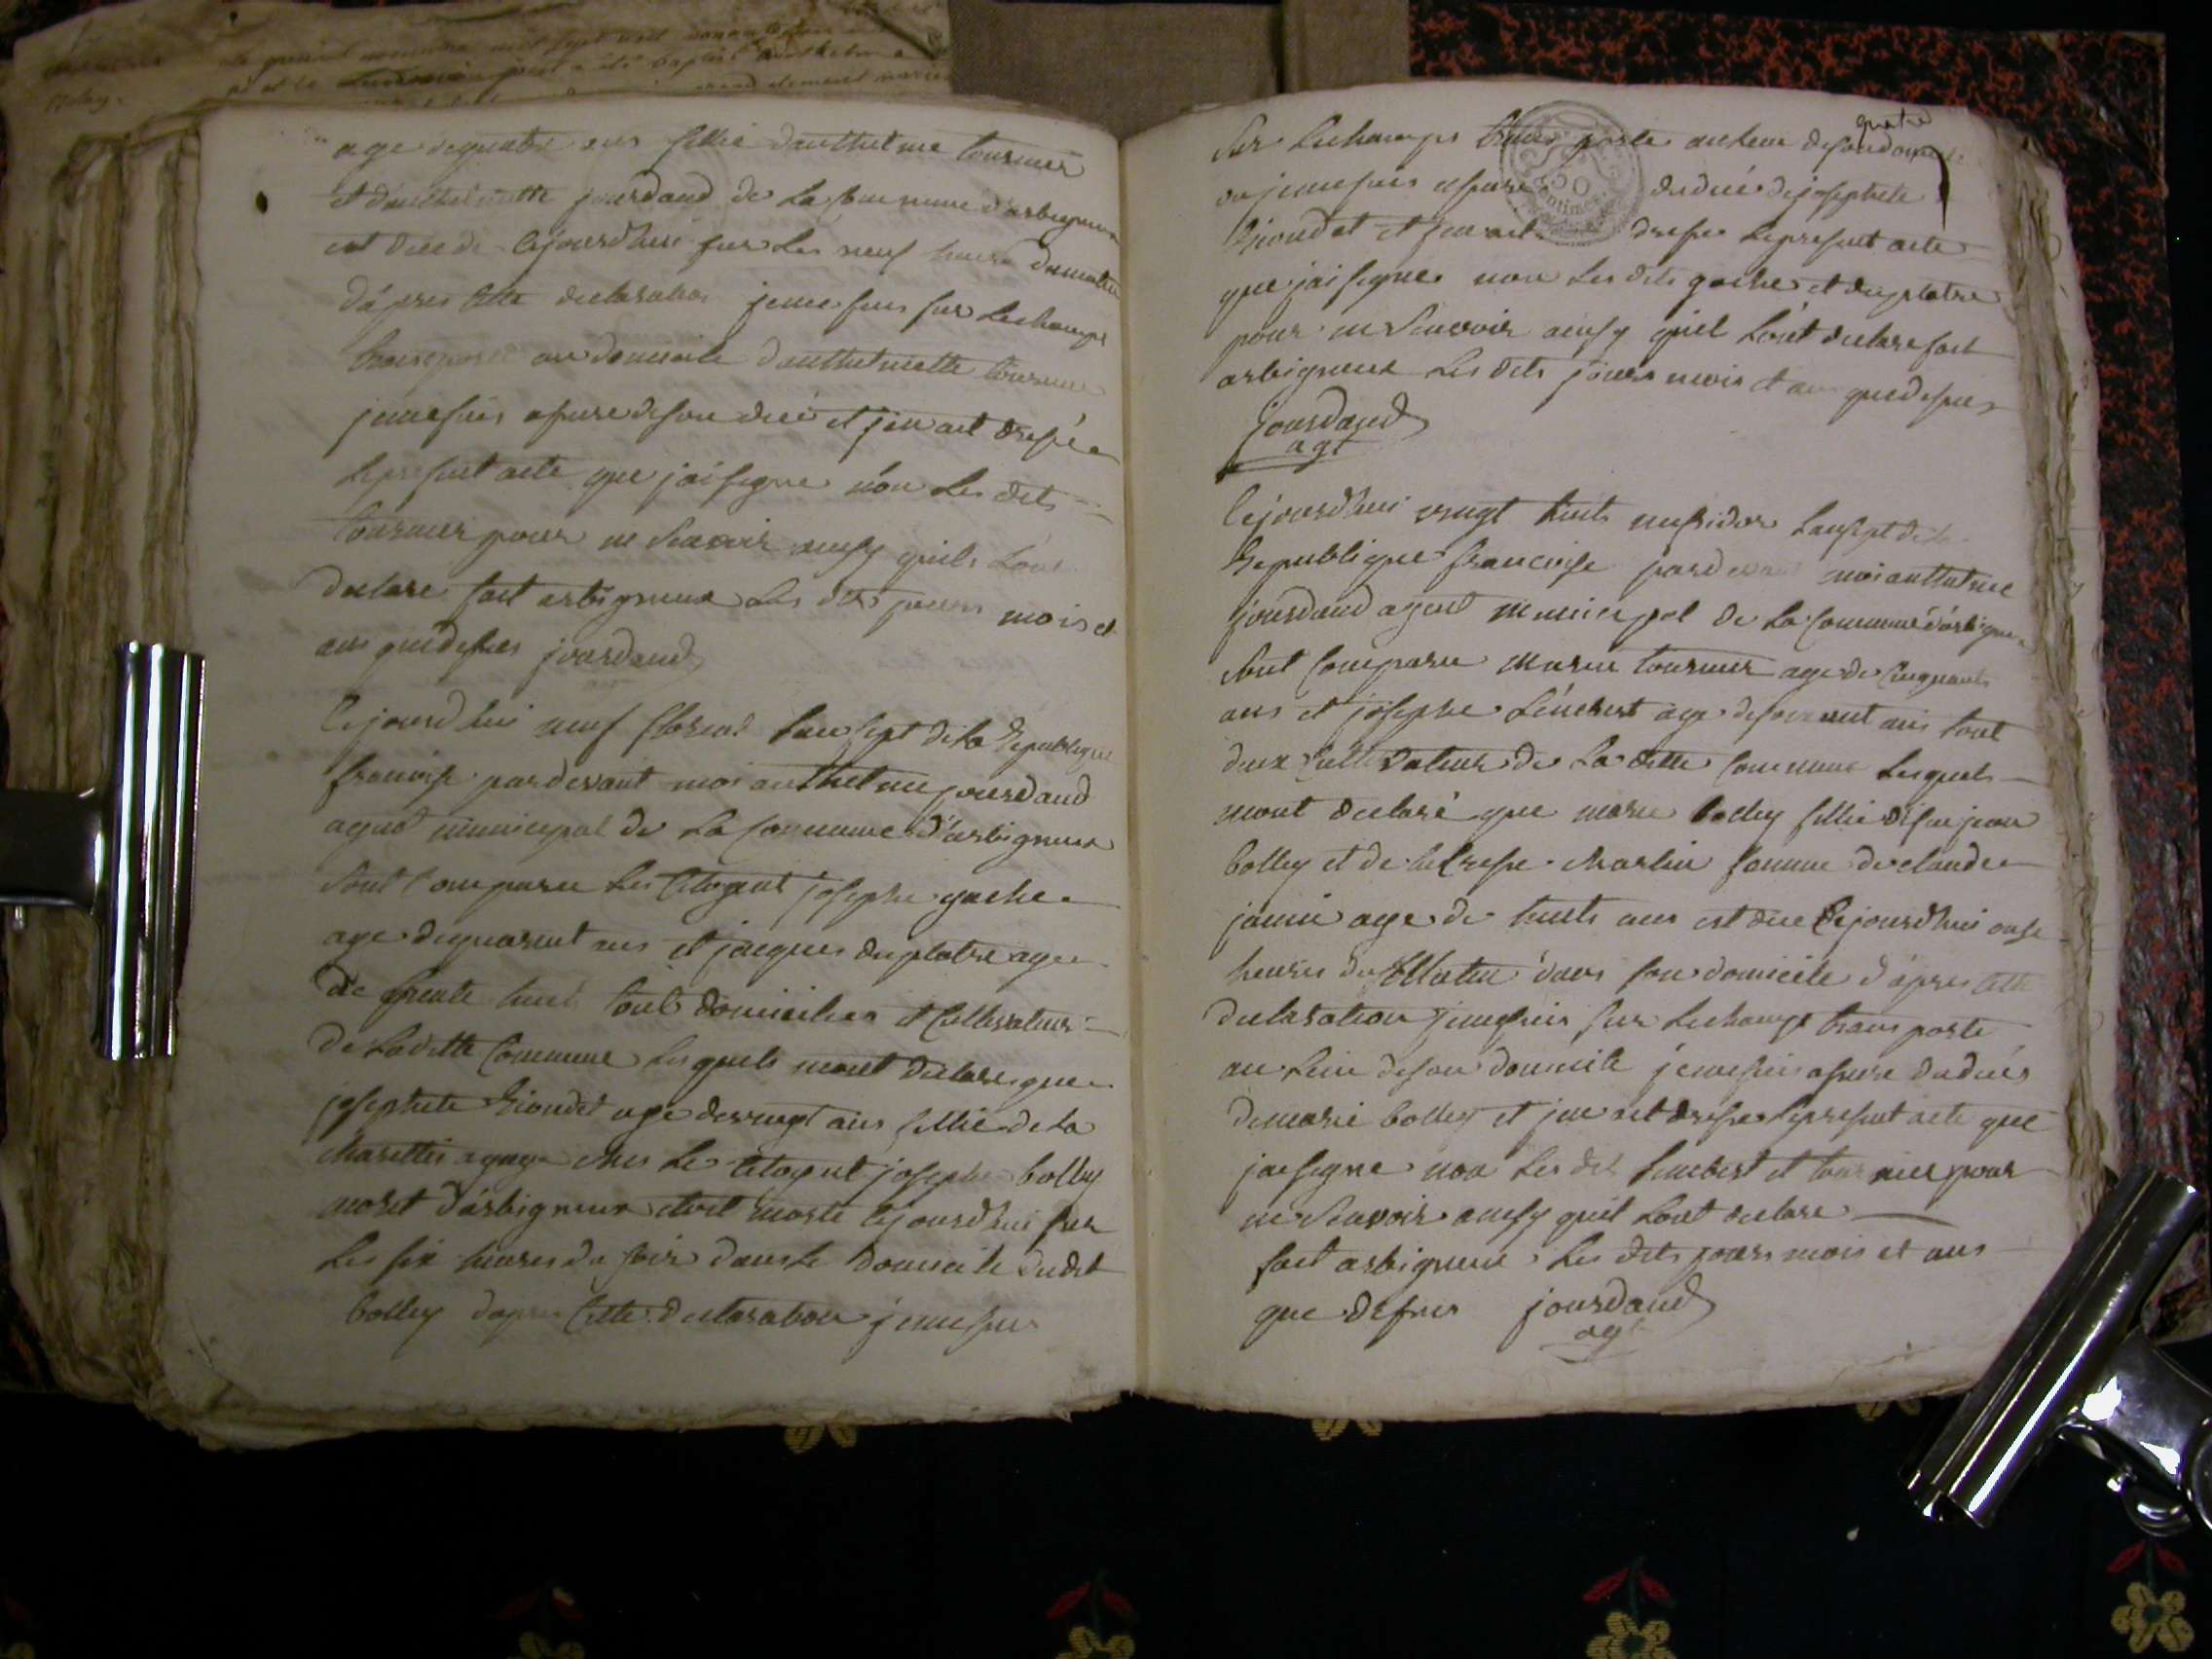 age de quatre ans fillie danthelme tournier
et danthelmette jourdand de La Commune d'arbignieux
est dede Cejourdhui sur Les neuf heures Dumatin
Dápres Cette declaration jemesuis sur Lechamps
transporte au domicile danthelmette tournier
jemesuis asure deson decé et jenait dressée
Lepresent acte que jaisigne nón Les dits
tournier pour ne Scavoir ainsy quils Lónt
declare fait arbignieux Les dits jours mois et
ans quedesus jourdand
Cejourdhui neuf floreal Lan sept deLa Republique
francoise pardevant moi anthelme jourdand
agent municipal de La Commune d'arbignieux
Sont Comparu Les Citoyent josephe gache
age dequarent ans et jacques duplatre age
de trente huit touts domicilies et Cultivateur
de Laditte Commune Lesquels mont declare que
josephete Riondet age devingt ans fillie de La
Marettes agage ches Le Citoyent josephe bolley
moret d'arbignieux etoit morte Cejourdhui sur
Les six heures du soir dansLe Domicile dudit
bolley dapres Cette declaration jemesuis
quatre
Sur Lechamps trans porte auLieu desondomicile
ou jemesuis asure dudecé de josephete
Riondet et jenait dresse Lepresent acte
que jaisigne non Les dits gache et duplatre
pour ne Scavoir ainsy quil Lónt declare fait
arbignieux Les dits jours mois et ans quedesus
jourdand
agt
Cejourdhui vingt huits messidor Lansept de La
Republique francoise pardevant moi anthelme
jourdand agent municipal de La Commune d'arbignieux
Sont Comparu Marin tournier age de Cinquante
ans et josephe Limbert age desoixant ans tout
deux Cultivateur de La ditte Commune Lesquels
mont declaré que marie bolley fillie defue jean
bolley et de Martin famme de claude
janin age de huits ans est dée Cejourdhui onse
heures du Matin dans son domicile dápres Cette
declaration jemesuis sur Lechamps trans porte
au Lieu deson domicile jémesuis asure dudecés
de marie bolley et jenait dresse Lepresent acte que
jaisigne non Les dit Limbert et tournier pour
ne Scavoir ainsy quil Lont declare
fait arbignieux Les dits jours mois et ans
que desus jourdand
agt